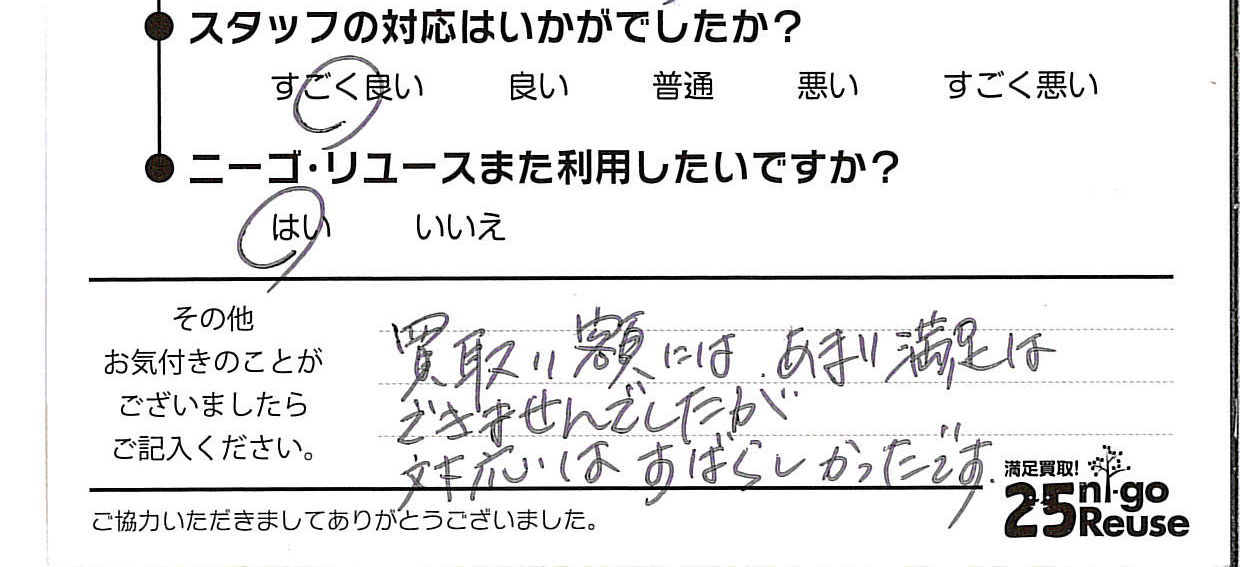 スタッフの対応はいかがでしたか？
すごく良い 良い 普通 悪い すごく悪い
ニーゴ・リユースまた利用したいですか？
はい いいえ
その他
お気付きのことが
ございましたら
ご記入ください。
買取り額には、あまり満足は
できませんでしたが
対応はすばらしかったです。
満足買取!
25 ni-go
Reuse
ご協力いただきましてありがとうございました。